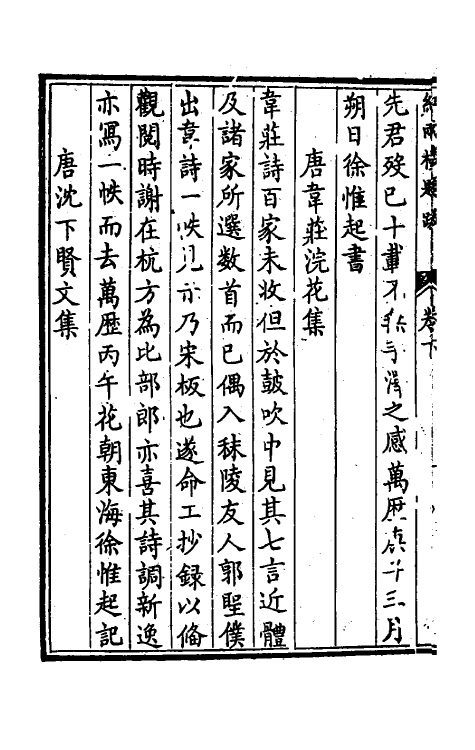 紅雨樓題跋 卷下
先君歿已十載不能手澤之感萬曆庚子三月
朔日徐惟起書
唐韋莊浣花集
韋莊詩百家未收但於鼓吹中見其七言近體
及諸家所選数首而已偶入秣陵友人郭聖僕
出韋詩一帙見示乃宋板也遂命工抄録以俻
觀閱時謝在杭方為比部郎亦喜其詩調新逸
亦寫一帙而去萬歴丙午花朝東海徐惟起記
唐沈下賢文集